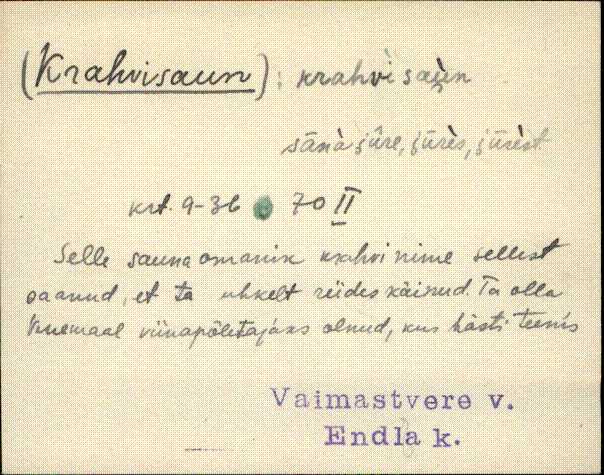 (Krahvisaun): krahvì saùn
sānà jūre, jūrès, jūrèst
krt. 9-36 70 II
Selle sauna omanik krahvi nime sellest
saanud, et ta uhkelt riides käinud. Ta olla
Venemaal viinapõletajaks olnud, kus hästi teenis
Vaimastvere v.
Endla k.